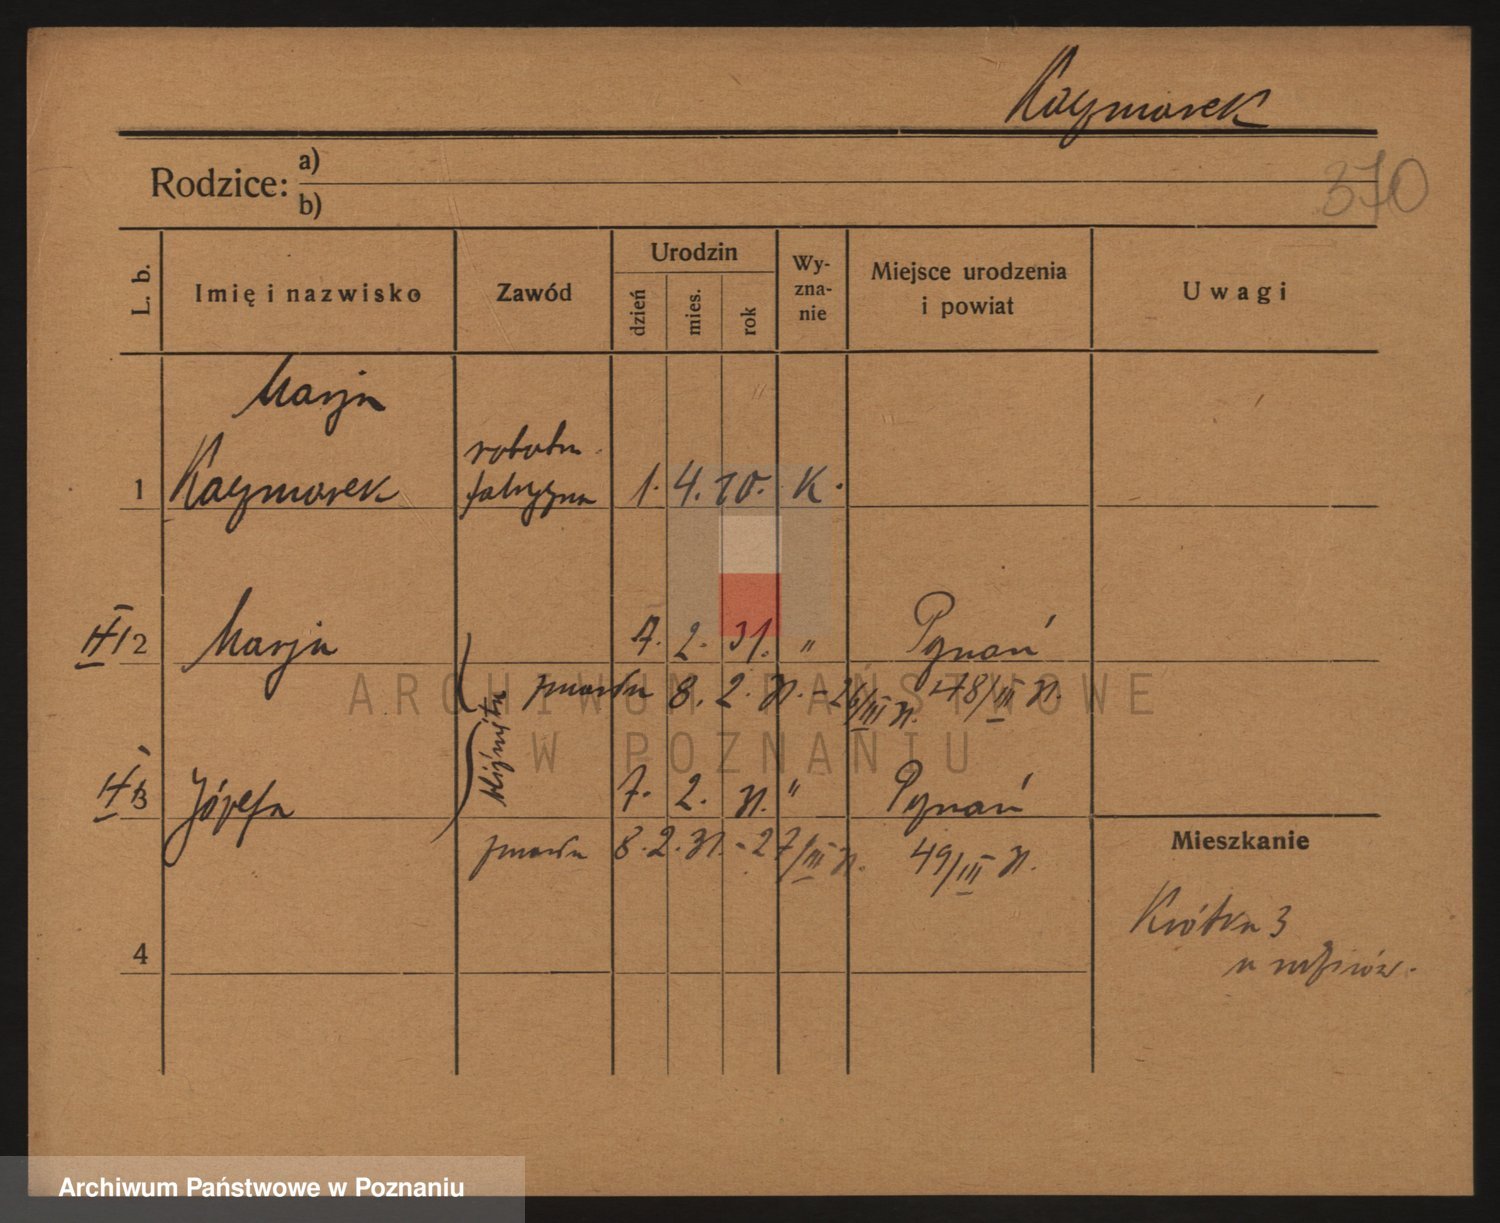 Kaczmarek
370
Rodzice: a)
b)
L. b.
Imię i nazwisko
Zawód
Urodzin
dzień
mies.
rok
Wy-
zna-
nie
Miejsce urodzenia
i powiat
Uwagi
Marja
robotn.
1 Kaczmarek fabryczna 1. 4. 10. K.
2 Marja 7. 2. 31. " Poznań
zmarła 8. 2. 31. - 26/III 31. 48/III 31.
bliźnięta
3 Józefa 7. 2. 31. " Poznań
zmarła 8. 2. 31. - 27/III 31. 49/III 31.
4
Mieszkanie
Krótka 3
u rodziców.
ARCHIWUM PAŃSTWOWE
W POZNANIU
Archiwum Państwowe w Poznaniu